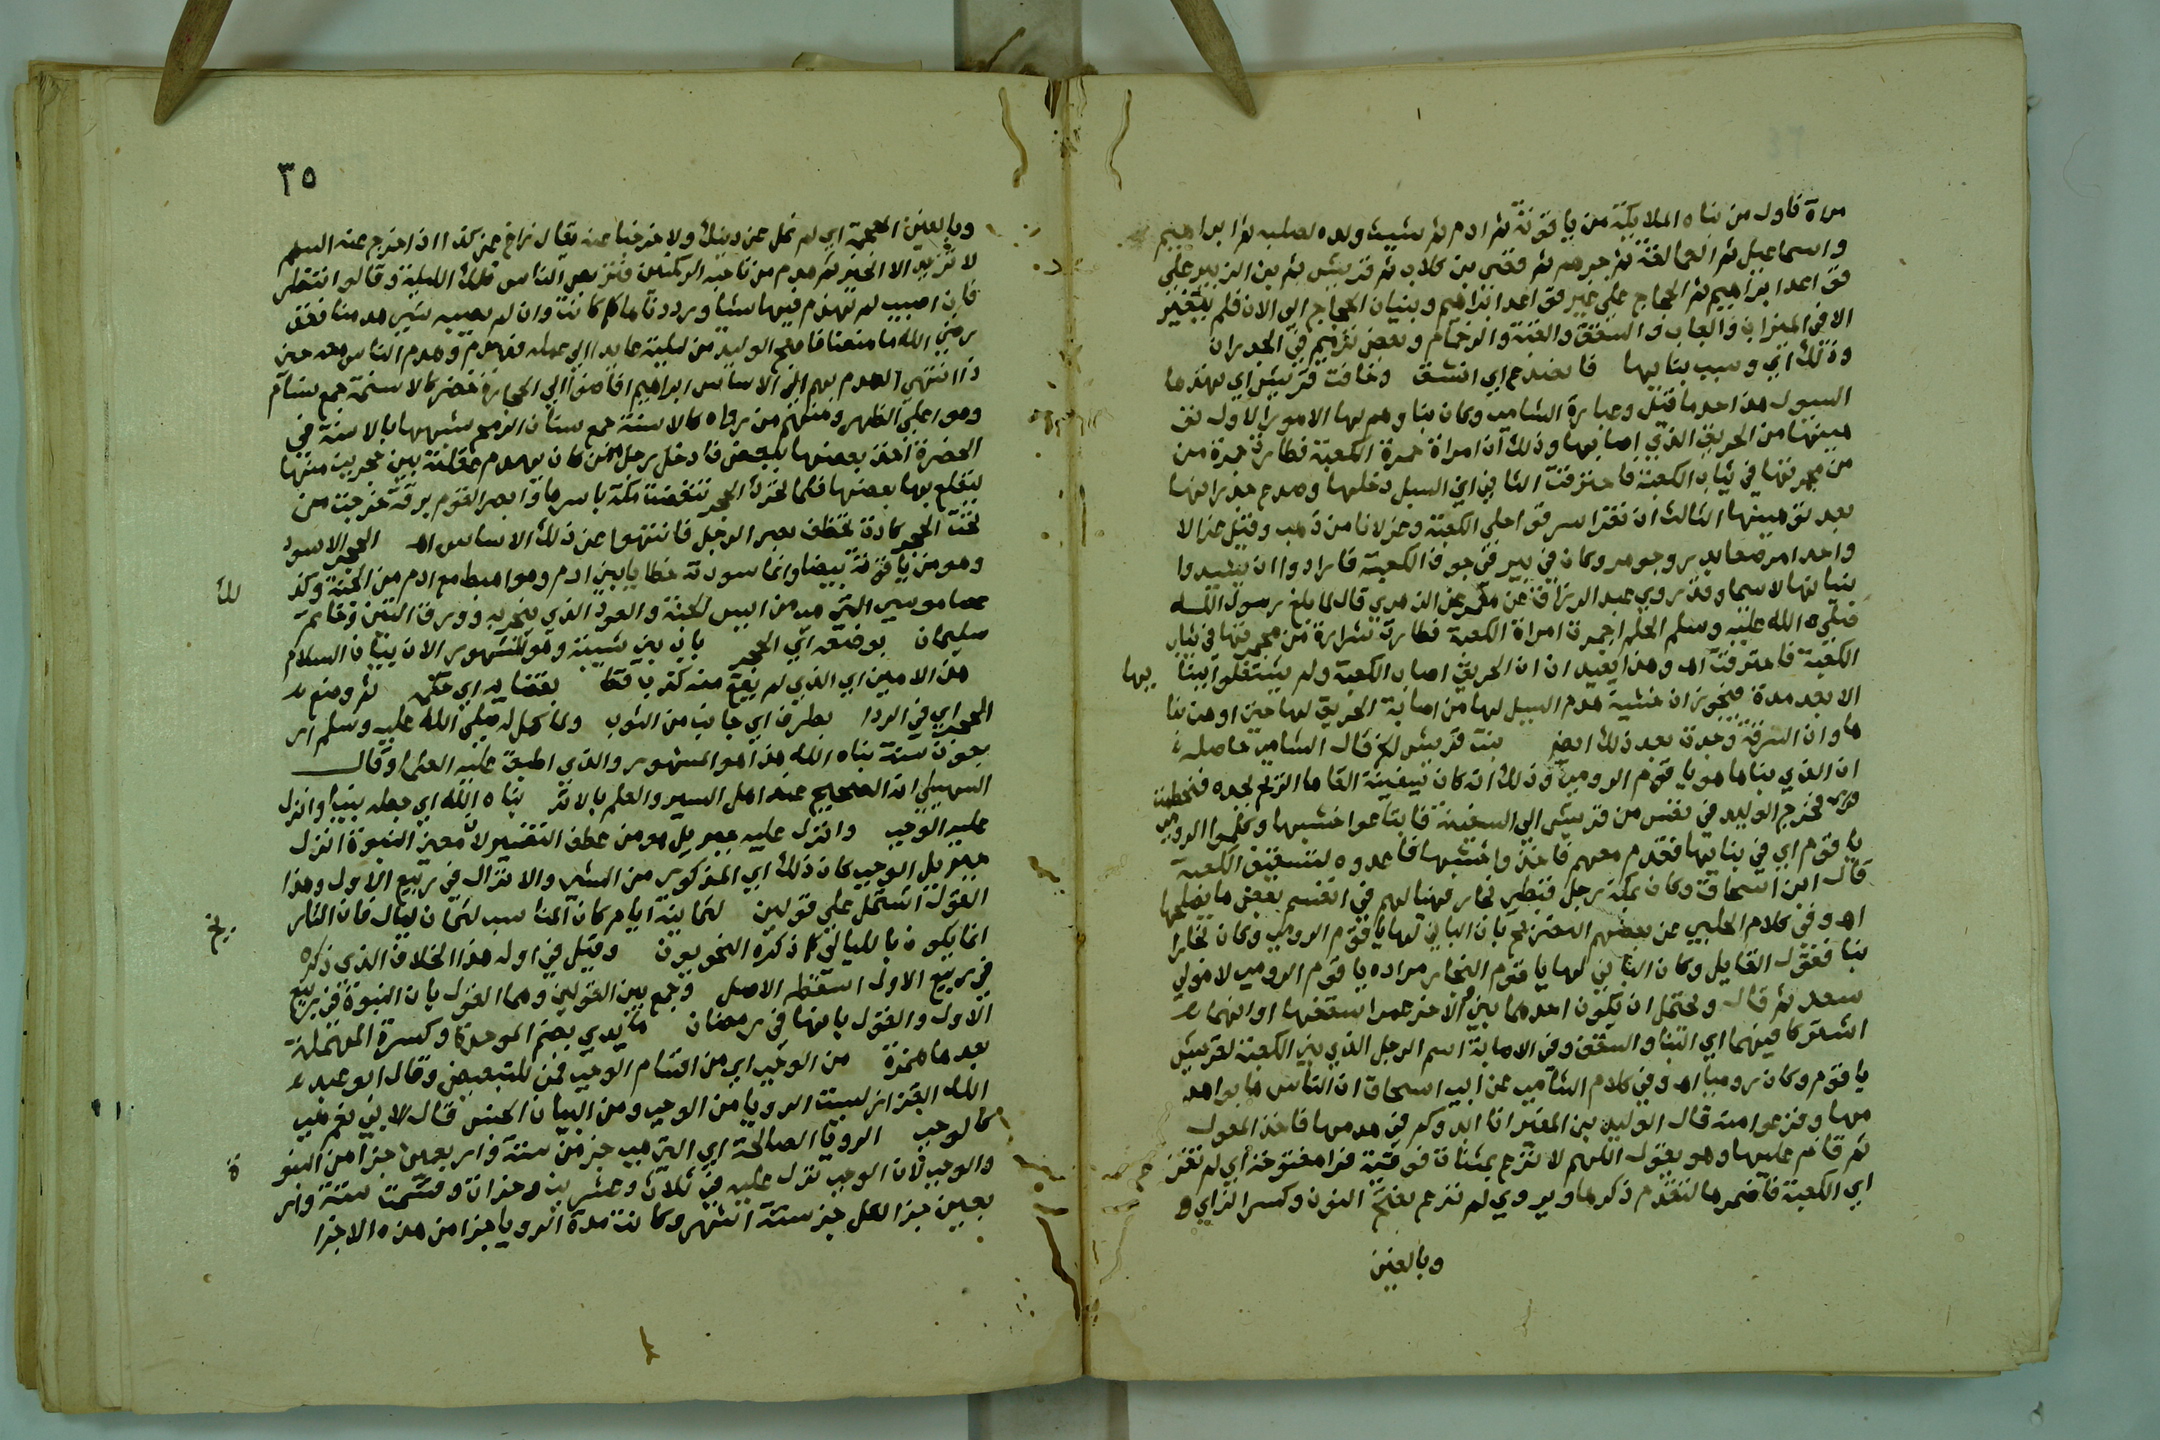 مرة فاول من بناه الملايكة من ياقوتة ثم ادم ثم شيث ولده لصلبه ثم ابراهيم
واسماعيل ثم العمالقة ثم جرهم ثم قصي بن كلاب ثم قريش ثم بن الزبير علي
قواعد ابراهيم ثم الحجاج علي غير قواعد ابراهيم وبنيان الحجاج الي الان فلم يتغير
الا في الميزاب والباب والسقف والعتبة والرخام وبعض ترميم في الجدران
وذلك اي وسبب بنايها فانصدع اي انشق وخافت قريش اي بهدمها
السيول هذا احد ما قيل وعبارة الشامي وكان بناوهم لها الامور الاول
من الحريق الذي اصابها وذلك ان امراة جمرة الكعبة فطارة جمرة من
من مجمرتها في ثياب الكعبة فاحترقت الثاني ان السيل دخلها وصدع جدرانها
بعد توهينها الثالث ان نفرا سرقوا حلي الكعبة وغزلانا من ذهب وقيل غزالا
واحدا مرصعا بدر وجوهر وكان في بير في جوف الكعبة فارادوا ان يشيدوا
بنيانها لاسما وقد روي عبد الرزاق عن معمر عن الزهري قال لما بلغ رسول الله
صلي الله عليه وسلم الحلم اجمرة امراة الكعبة فطارة شرارة من مجمرتها في ثياب
الكعبة فاحترقت اه وهذا يفيد ان الحريق اصاب الكعبة ولم يشتغلوا ببنا
يها
الا بعد مدة فيجوز ان خشية هدم السيل لها من اصابة الحريق لها حين اوهن بنا
ها وان السرقة وجدة بعد ذلك ايضا بنت قريش لخ قال الشامي حاصله
ان الذي بناها هو ياقوم الرومي وذلك ان كان سفينة القاها الريح لجده فتحطمت
فخرج الوليد في نفر من قريش الي السفينة فابتاعوا خشبها وكلموا الرومي
ياقوم اي في بنايها فقدم معهم فاخذوا خشبها فاعدوه لتسقيف الكعبة
قال ابن اسحاق وكان بمكة رجل قبطي نجار فهيا لهم في انفسهم بعض ما يصلحها
اه وفي كلام الحلبي عن بعضهم التصريح بان الباني لها ياقوم الرومي وكان نجارا
بنا فقول القايل وكان الباني لها ياقوم النجار مراده ياقوم الرومي لا مولي
سعد ثم قال ويحتمل ان يكون احدهما بني والاخر عمل سقفها او انهما
اشتركا فيهما اي البنا والسقف وفي الاصابة اسم الرجل الذي بني الكعبة لقريش
ياقوم وكان روميا اه وفي كلام الشامي عن ابي اسحاق ان الناس هابوا هد
مها وفزعوا منه قال الوليد بن المغيرة انا ابدوكم في هدمها فاخذ المعول
ثم قام عليها وهو يقول اللهم لا تزع بمثناة فوقية فرا مفتوحة اي لم تفزع
اي الكعبة فاضمرها لتقدم ذكرها ويروي لم نزع بفتح النون وكسر الزاي و
وبالغين
٣٥
وبالغين المعجمة اي لم نمل عن دينك ولا خرجنا عنه يقال زاغ عن كذا اذا خرج عنه اللهم
لا نريد الا الخير ثم هدم من ناحية الركنين فتربص الناس تلك الليلة وقالوا ننتظر
فان اصيب لم نهدم فيها شيا ورددناها كما كانت وان لم يصيبه شي هدمنا فقد
رضي الله ما صنعنا فاصبح الوليد من ليلته عايدا الي عمله فهدم وهدم الناس معه حتي
اذا انتهي الهدم بهم الي الاساس ابراهيم افاضوا الي الحجارة خضر كالاسنمة جمع سنام
وهو اعلي الظهر ومنهم من رواه كالاسنة جمع سنان الرمح شبهها بالاسنة في
الخضرة اخذ بعضها ببعض فادخل رجل ممن كان يهدم عتلته بين حجرين منها
ليقلع بها بعضها فلما تحرك الحجر تنقضت مكة باسرها وابصر القوم برقة خرجت من
تحت الحجر كادة تخطف بصر الرجل فانتهوا عن ذلك الاساس اه الحجر الاسود
وهو من ياقوتة بيضا وانما سودته خطايا بني ادم وهو اهبط مع ادم من الجنة وكذ
لك
عصا موسي التي هي من البس الجنة والعود الذي يتجر به وورق التين وخاتم
سليمان بوضعه اي الحجر باني بني شيبة وهو المشهور الان بباب السلام
هذا الامين اي الذي لم يقع منه كذب قط بقضايه اي حكمه ثم وضع
الحجر اي في الردا بطرف اي جانب من الثوب ولما كمل له صلي الله عليه وسلم ار
بعون سنة بناه الله هذا هو المشهور والذي اطبق عليه العلما وقال
السهيلي انه الصحيح عند اهل السير والعلم بالاثر بناه الله اي جعله نبيا وانزل
عليه الوحي وانزل عليه جبريل هو من عطف التفسير لان معني النبوة انزل
جبريل الوحي كان ذلك اي المذكور من البشر والانزال في ربيع الاول وهذا
القول اشتمل علي قولين لثمانية ايام كان المناسب لثمان ليال فان التار
يخ
انما يكون بالليالي كما ذكره النحويون وقيل في اول هذا الخلاف الذي ذكره
في ربيع الاول اسقطه الاصل وجمع بين القولين وهما القول بان النبوة في ربيع
الاول والقول بانها في رمضان ما يدي بضم الموحدة وكسرة المهملة
بعدها همزة من الوحي اي من اقسام الوحي فمن للتبعيض وقال ابو عبد
الله القزاز ليست الرويا من الوحي ومن البيان الجنس قال الابي نعم هي
كالوحي الرويا الصالحة اي التي هي جز من ستة واربعين جزا من النبو
ة
والوحي لان الوحي نزل عليه في ثلاث وعشرين وجزات وقسمت ستة وار
بعين جزا لكل جز ستة اشهر وكانت مدة الرويا جزا من هذه الاجزا